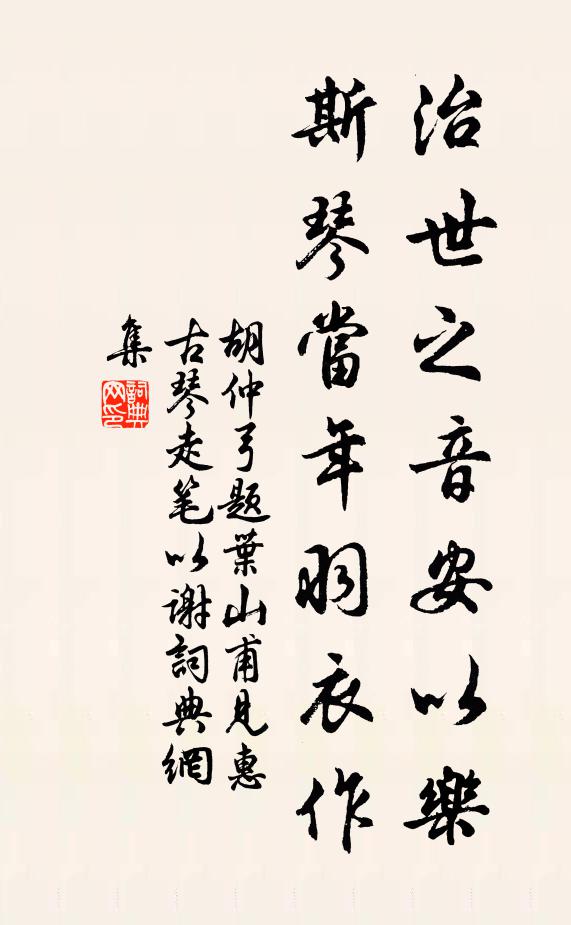 治世之音安以樂
斯琴當年羽衣作
胡仲弓題葉山甫見惠
古琴走笔以謝詞典網
集
詞典
网印